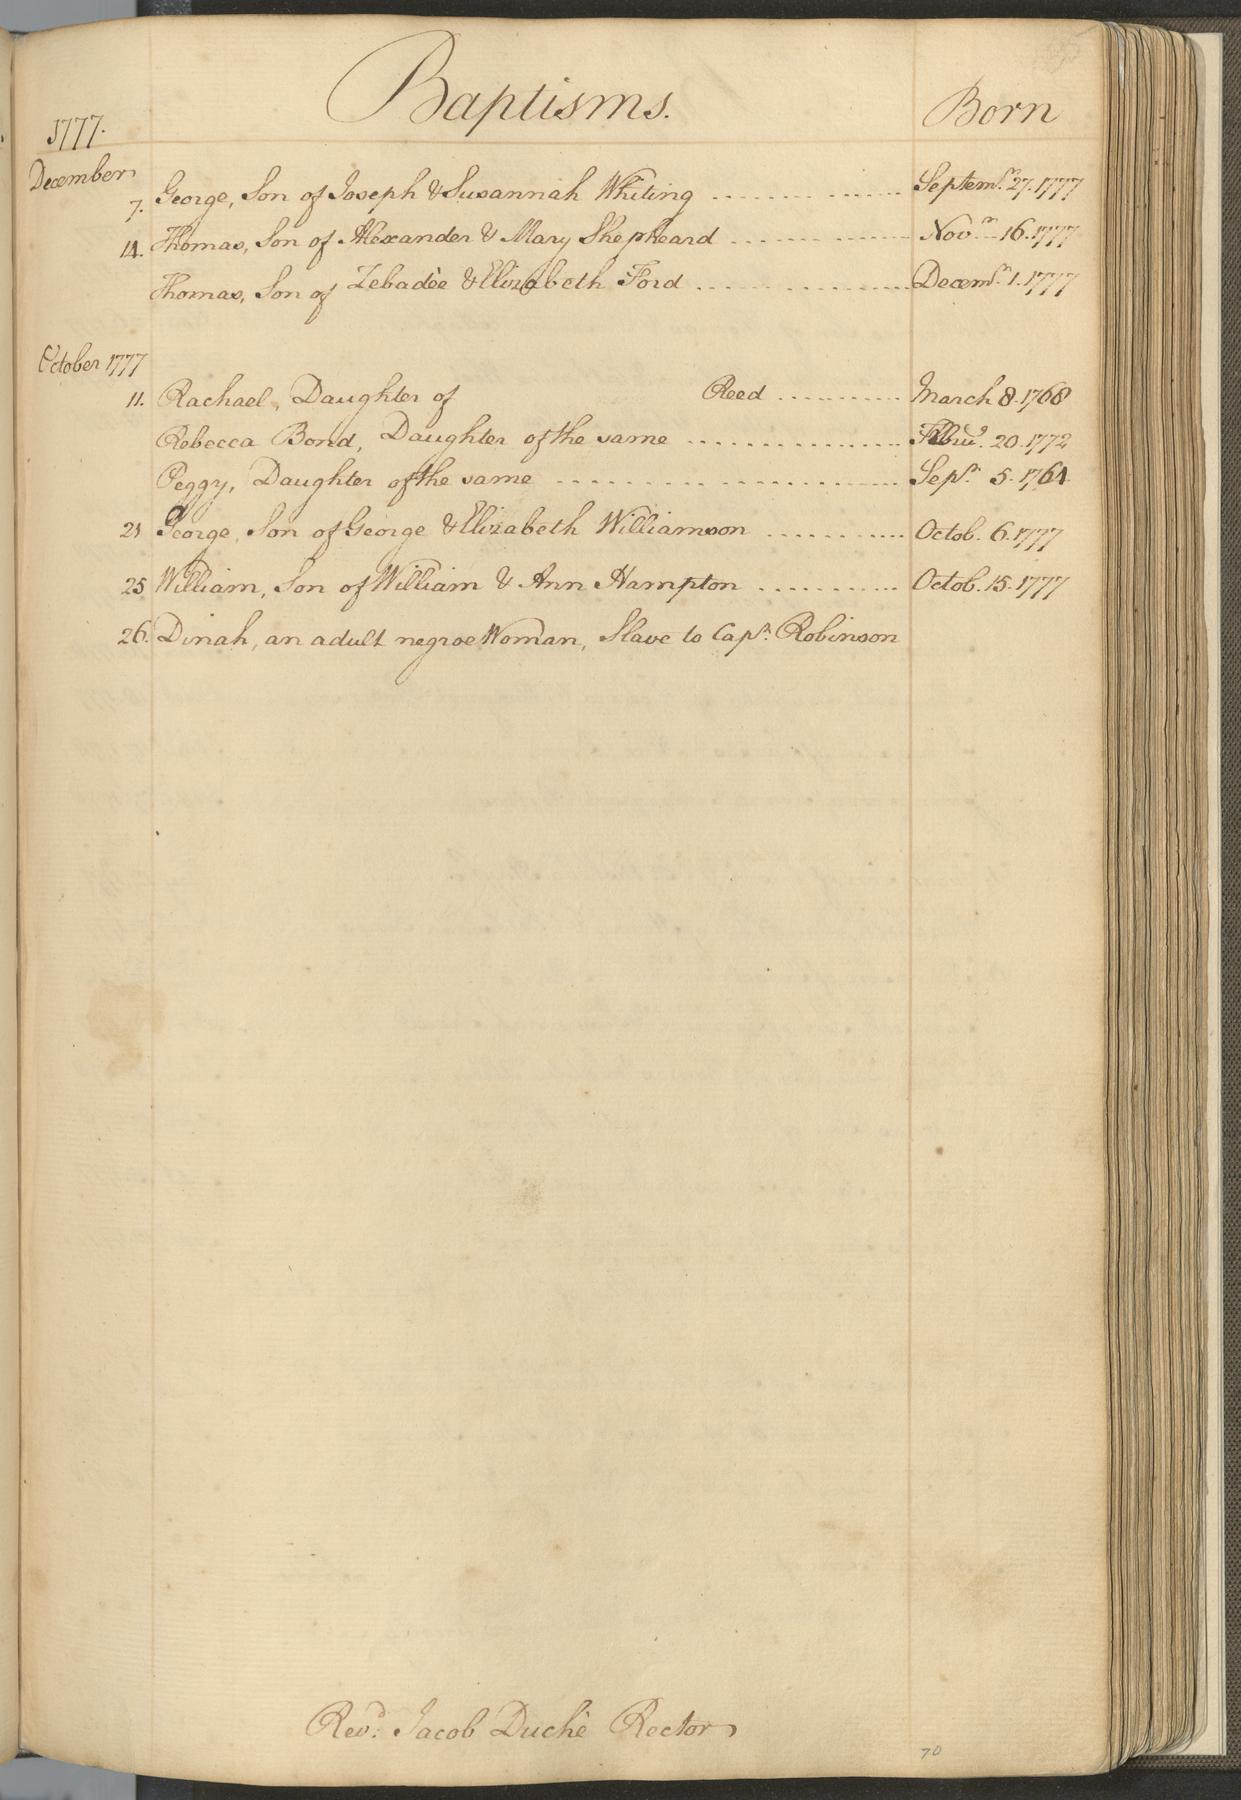 Baptisms. Born
1777.
December
7. George, Son of Joseph & Susannah Whiting ..... ..... Septemr. 27. 1777
14. Thomas, Son of Alexander & Mary Shepheard ..... Novr. 16. 1777
Thomas, Son of Zebadèe & Elizabeth Ford ..... Decemr. 1. 1777
October 1777
11. Rachael, Daughter of Reed ..... March 8. 1768
Rebecca Bond, Daughter of the same ..... 20. 1772
Peggy, Daughter of the same ..... Sepr. 5. 1764
21 George, Son of George & Elizabeth Williamson ..... Octob. 6. 1777
25 William, Son of William & Ann Hampton ..... Octob. 15. 1777
26. Dinah, an adult negroe Woman, Slave to Capn. Robinson
Revd. Jacob Duchè Rector
70